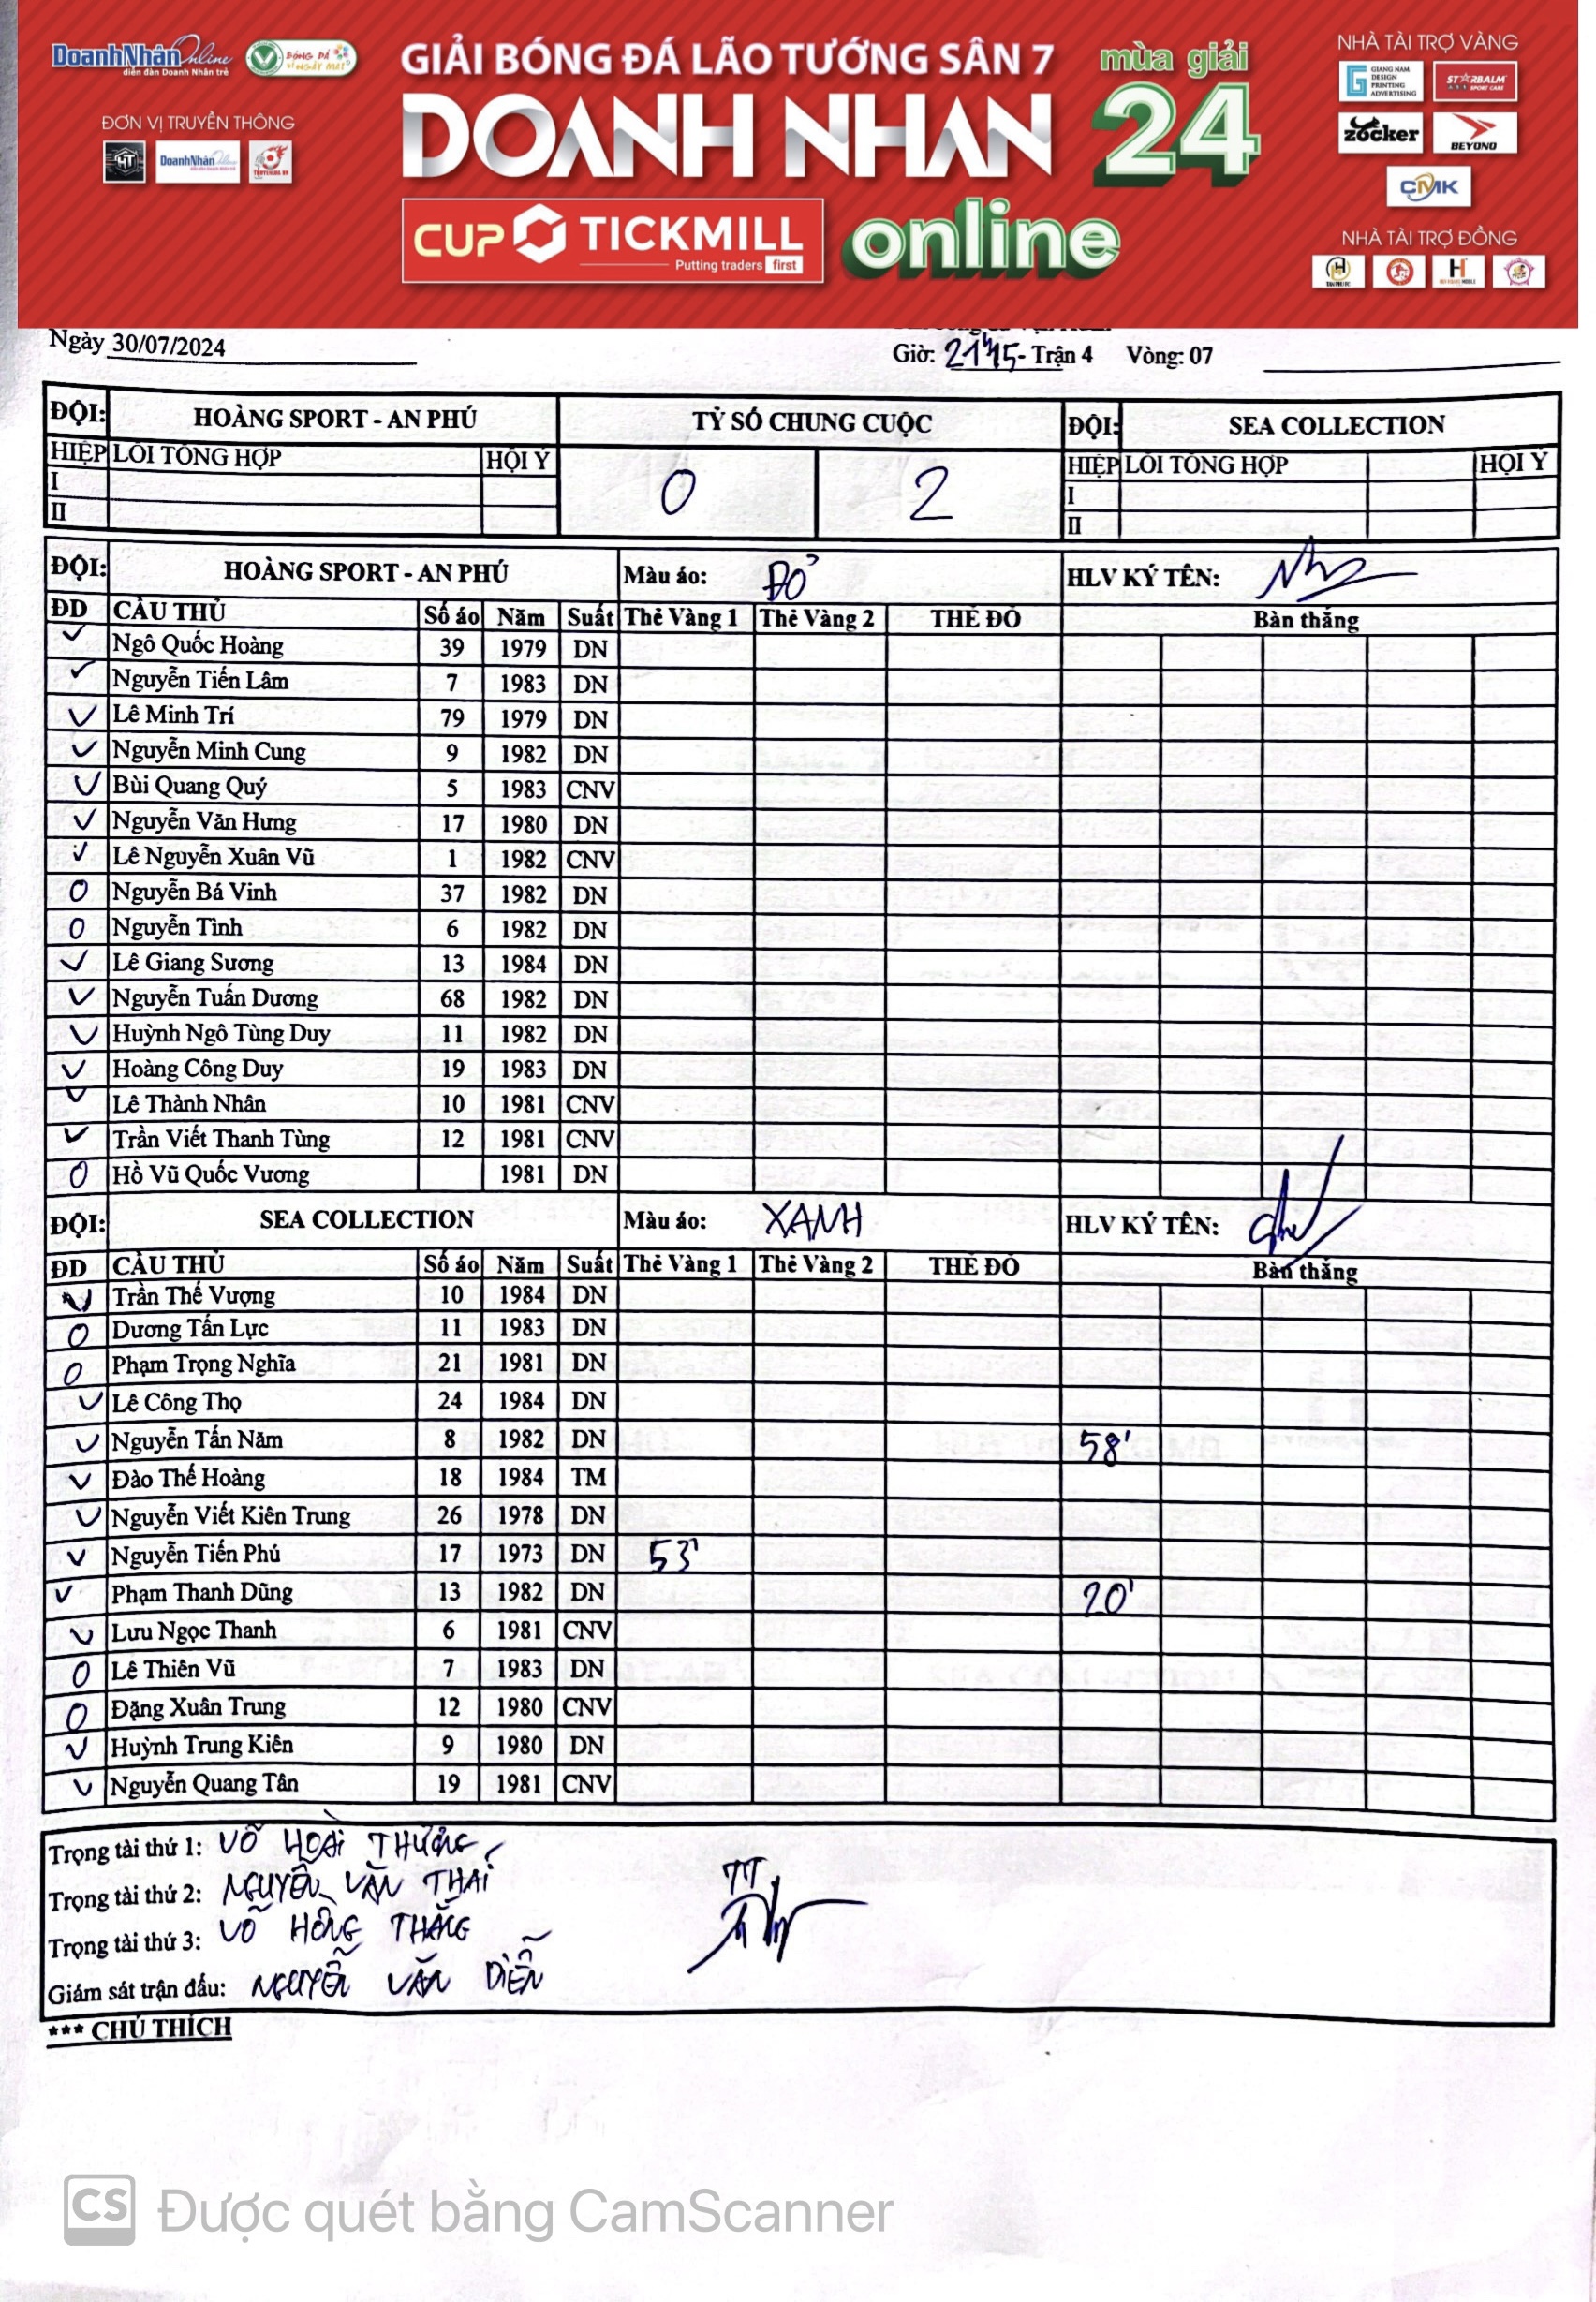 DoanhNhân Online
diễn đàn Doanh Nhân trẻ
BÓNG ĐÁ
ĐƠN VỊ TRUYỀN THÔNG
HT DoanhNhân Online
GIẢI BÓNG ĐÁ LÃO TƯỚNG SÂN 7 mùa giải
DOANH NHAN 24
CUP TICKMILL online
Putting traders first
NHÀ TÀI TRỢ VÀNG
GIANG NAM DESIGN PRINTING ADVERTISING
STARBALM
SPORT CARE
zocker BEYONO
CMK
NHÀ TÀI TRỢ ĐỒNG
Ngày 30/07/2024
Giờ: 21h45- Trận 4 Vòng: 07
ĐỘI: HOÀNG SPORT - AN PHÚ TỶ SỐ CHUNG CUỘC ĐỘI: SEA COLLECTION
HIỆP LỖI TỔNG HỢP HỘI Ý 0 2 HIỆP LỖI TỔNG HỢP HỘI Ý
I I
II II
ĐỘI: HOÀNG SPORT - AN PHÚ Màu áo: ĐỎ HLV KÝ TÊN:
ĐD CẦU THỦ Số áo Năm Suất Thẻ Vàng 1 Thẻ Vàng 2 THẺ ĐỎ Bàn thắng
Ngô Quốc Hoàng 39 1979 DN
Nguyễn Tiến Lâm 7 1983 DN
Lê Minh Trí 79 1979 DN
Nguyễn Minh Cung 9 1982 DN
Bùi Quang Quý 5 1983 CNV
Nguyễn Văn Hưng 17 1980 DN
Lê Nguyễn Xuân Vũ 1 1982 CNV
0 Nguyễn Bá Vinh 37 1982 DN
0 Nguyễn Tình 6 1982 DN
Lê Giang Sương 13 1984 DN
Nguyễn Tuấn Dương 68 1982 DN
Huỳnh Ngô Tùng Duy 11 1982 DN
Hoàng Công Duy 19 1983 DN
Lê Thành Nhân 10 1981 CNV
Trần Viết Thanh Tùng 12 1981 CNV
0 Hồ Vũ Quốc Vương 1981 DN
ĐỘI: SEA COLLECTION Màu áo: XANH HLV KÝ TÊN:
ĐD CẦU THỦ Số áo Năm Suất Thẻ Vàng 1 Thẻ Vàng 2 THẺ ĐỎ Bàn thắng
Trần Thế Vượng 10 1984 DN
0 Dương Tấn Lực 11 1983 DN
0 Phạm Trọng Nghĩa 21 1981 DN
Lê Công Thọ 24 1984 DN
Nguyễn Tấn Năm 8 1982 DN 58'
Đào Thế Hoàng 18 1984 TM
Nguyễn Viết Kiên Trung 26 1978 DN
Nguyễn Tiến Phú 17 1973 DN 53'
Phạm Thanh Dũng 13 1982 DN 20'
Lưu Ngọc Thanh 6 1981 CNV
0 Lê Thiên Vũ 7 1983 DN
0 Đặng Xuân Trung 12 1980 CNV
Huỳnh Trung Kiên 9 1980 DN
Nguyễn Quang Tân 19 1981 CNV
Trọng tài thứ 1: VÕ HOÀI THƯƠNG
Trọng tài thứ 2: NGUYỄN VĂN THÁI
Trọng tài thứ 3: VÕ HỒNG THẮNG
TT
Giám sát trận đấu: NGUYỄN VĂN DIỄN
*** CHÚ THÍCH
CS Được quét bằng CamScanner